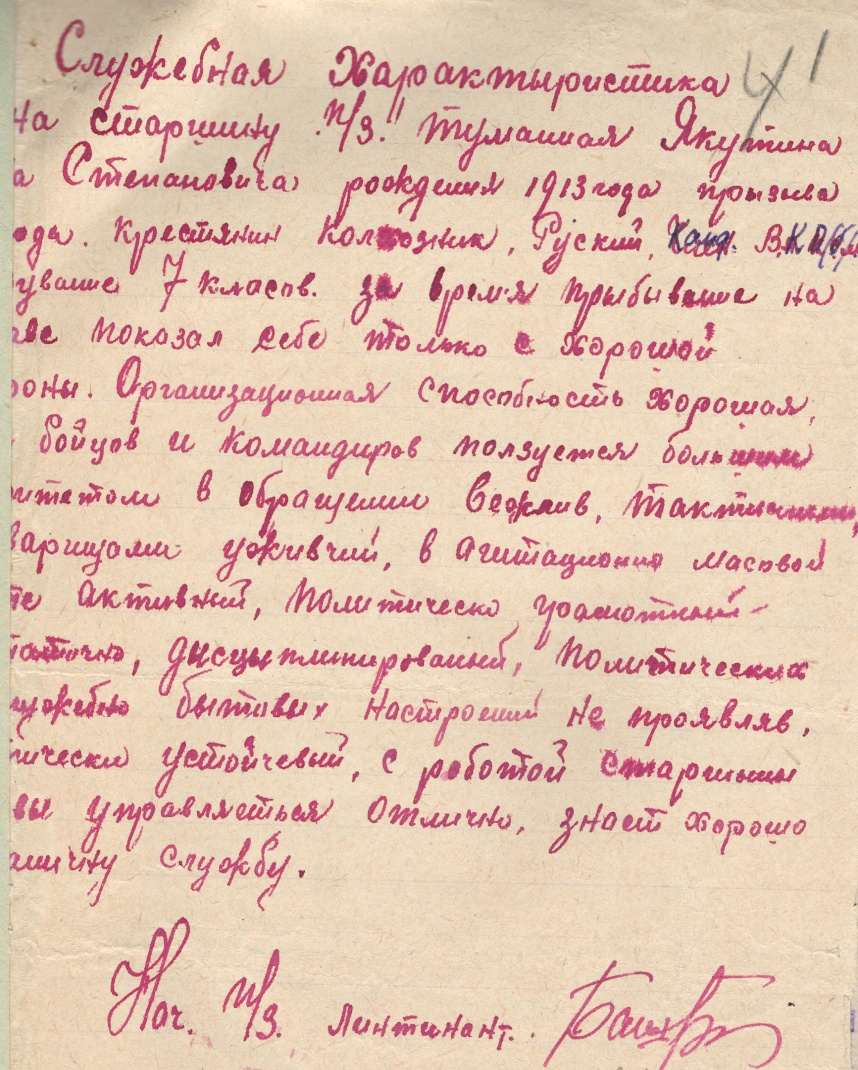 Служебная Характыристика 41
на старшину п/з. "Туманная" Якутина
а Степановича рождения 1913 года призыва
ода. Крестянин Колхозник, Руский, Канд. В.К.П(б)
ување 7 класов. за время прыбывание на
аве показал себе только с хорошой
роны. Организационная способность хорошая,
бойцов и командиров ползуется большим
ритетом в обращении вежлив,
варищами уживчий, в агитационно масовой
те активний, политическо грамотный
дисцыплинированый, Политических
лужебно бытавых настроений не проявляв,
тически устойчевый, с роботой старшины
вы управляеться отлично, знает хорошо
аничну службу.
Нач. п/з. линтинант.